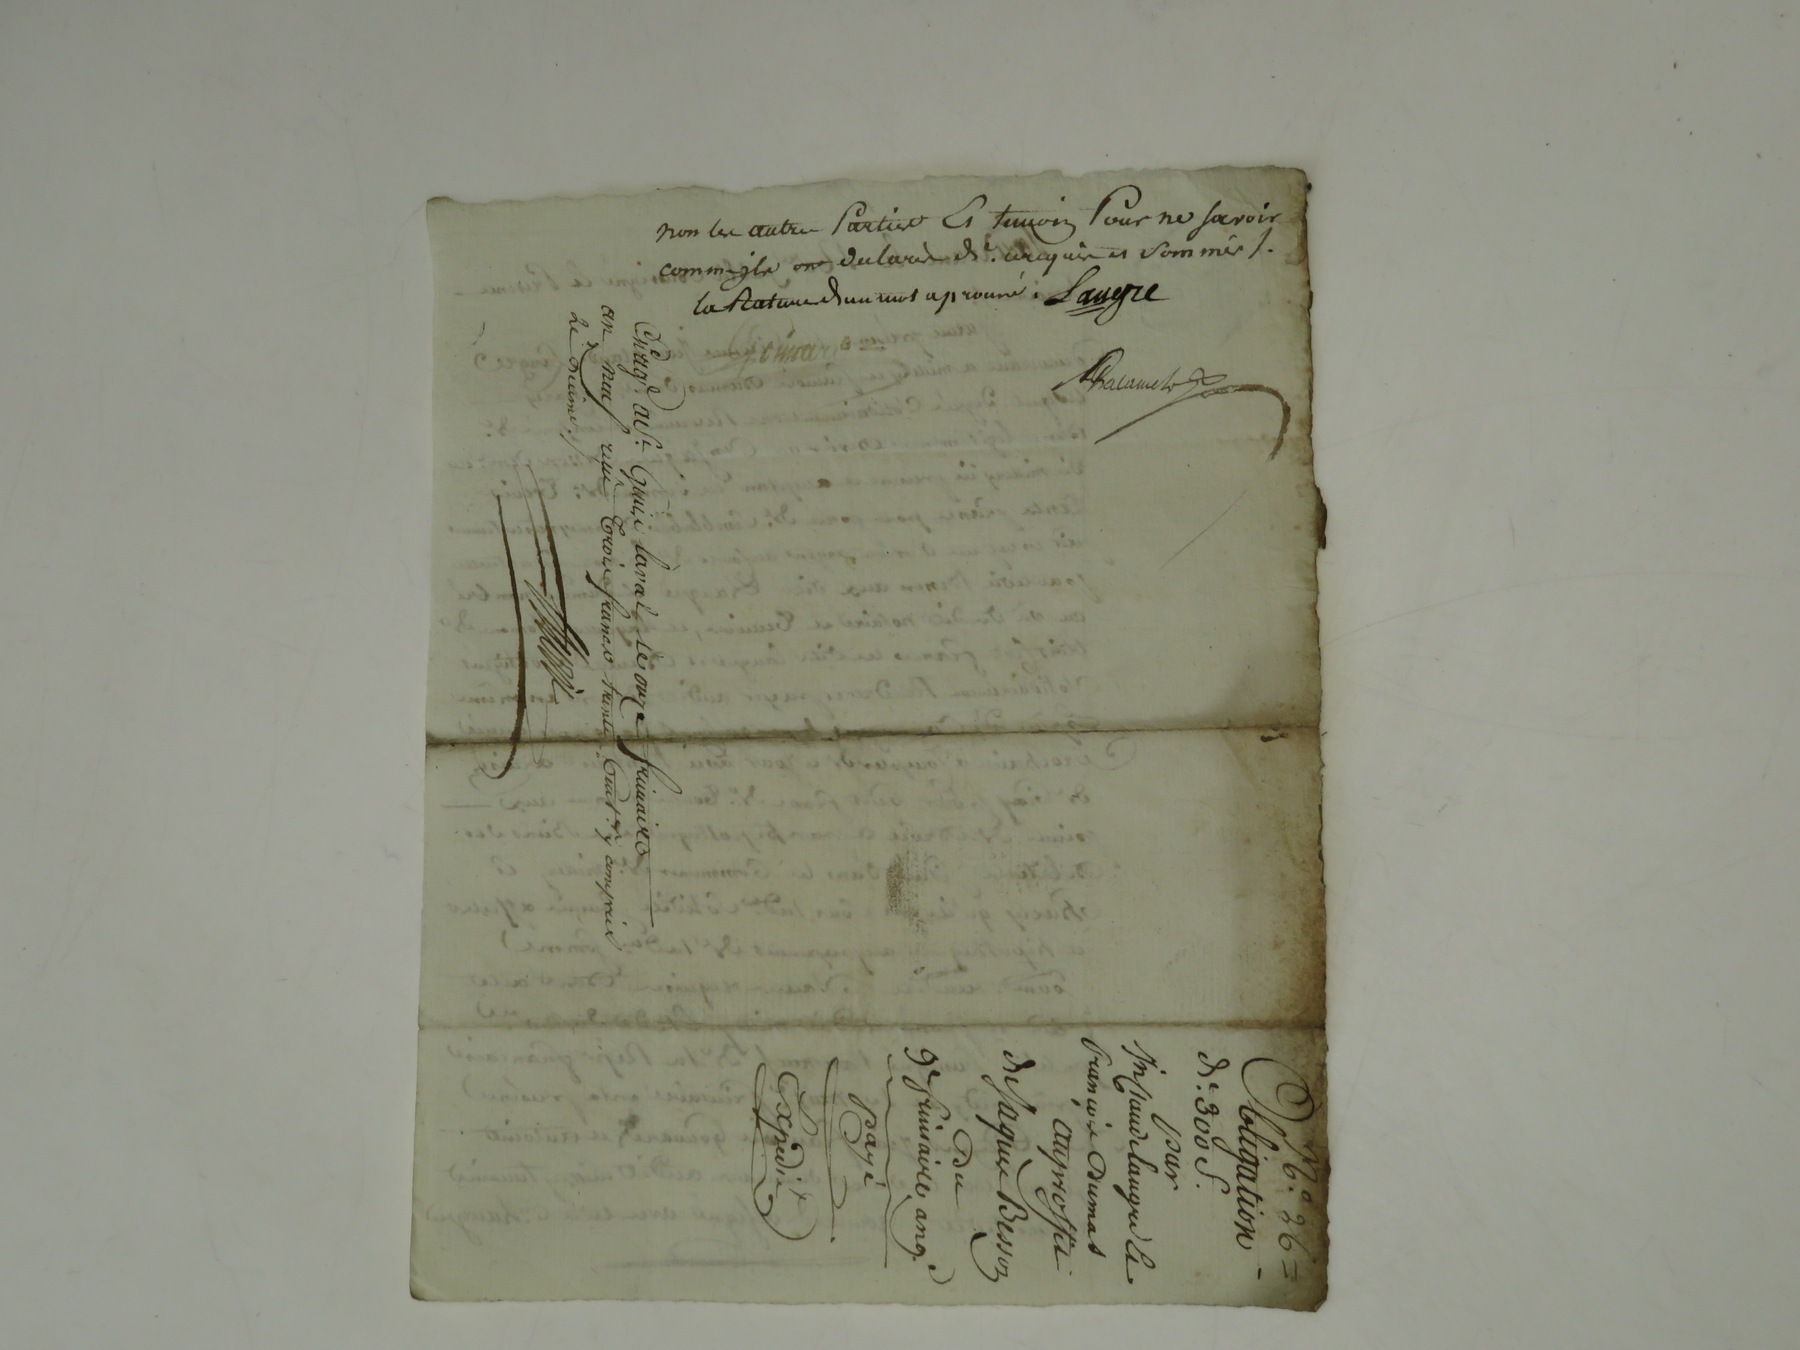 non les autre Parties Et temoin Pour ne savoir
comme ils ont declaré de ce requis et sommés /.
la Rature d'un mot aprouvé. Laugre
Chalamet
Enregé à St Genis laval le onze frimaire
an neuf reçu trois francs trente Centes y compris
le Decime /.
No 26 =
Obligation
de 300 f.
par
Laugre Et
françois Dumas
au proffit
de Jaque Besson
Du
9e frimaire an 9.
payé
Expedié